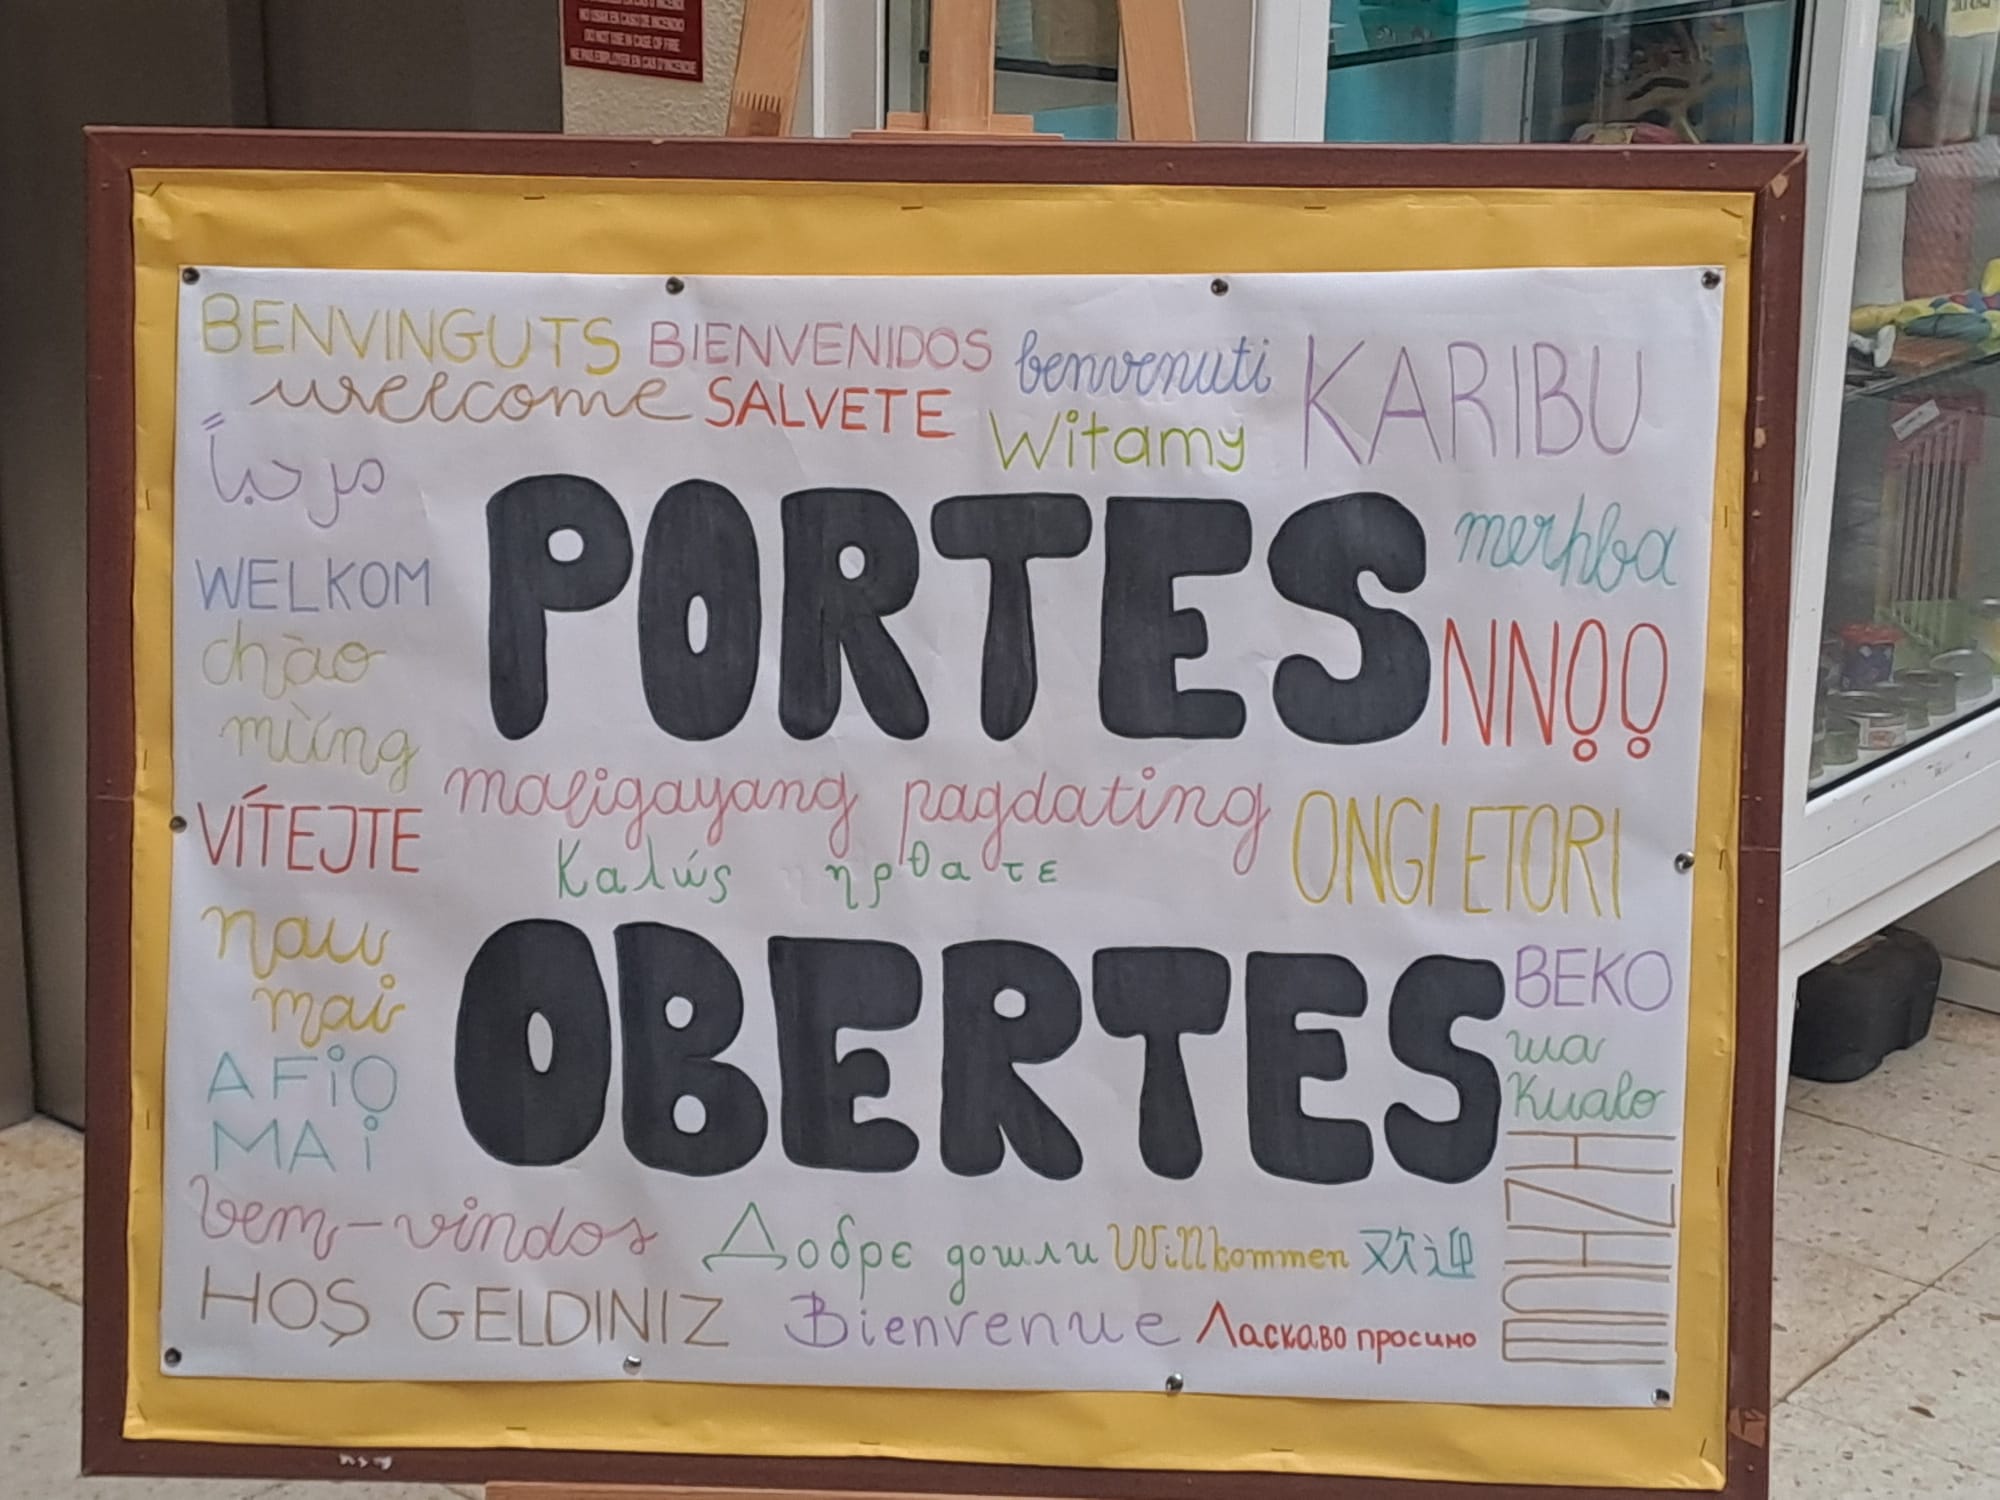 NO USAR EN CASO DE INCENDIO
DO NOT USE IN CASE OF FIRE
NE PAS EMPLOYER EN CAS D'INCENDIE
BENVINGUTS BIENVENIDOS benvenuti KARIBU
welcome SALVETE Witamy
مرحباً
PORTES
merħba
WELKOM
chào
mừng
NNỌỌ
maligayang pagdating
VÍTEJTE
Καλώς ηρθατε
ONGI ETORI
nau
mai
OBERTES
BEKO
wa
Kwalo
AFIO
MAI
bem-vindos
Добре дошли Willkommen 欢迎
HOŞ GELDINIZ Bienvenue Ласкаво просимо